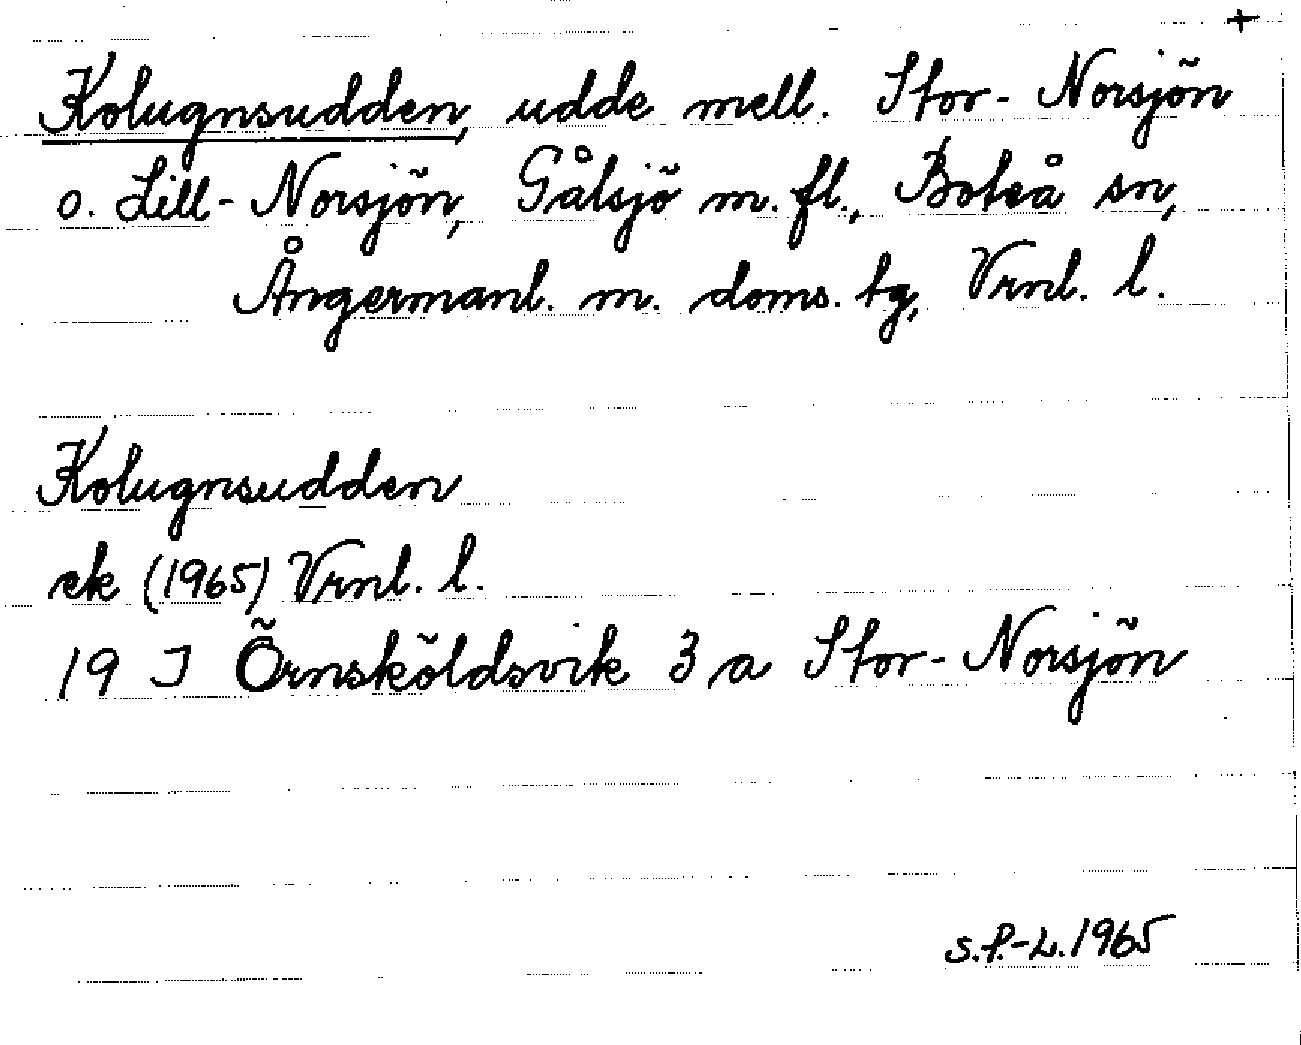 +
Kolugnsudden, udde mell. Stor-Norsjön
o. Lill-Norsjön, Gålsjö m.fl., Boteå sn,
Ångermanl. m. doms. tg, Vrnl. l.
Kolugnsudden
ek (1965) Vrnl. l.
19 J Örnsköldsvik 3 a Stor-Norsjön
S.P.-L. 1965